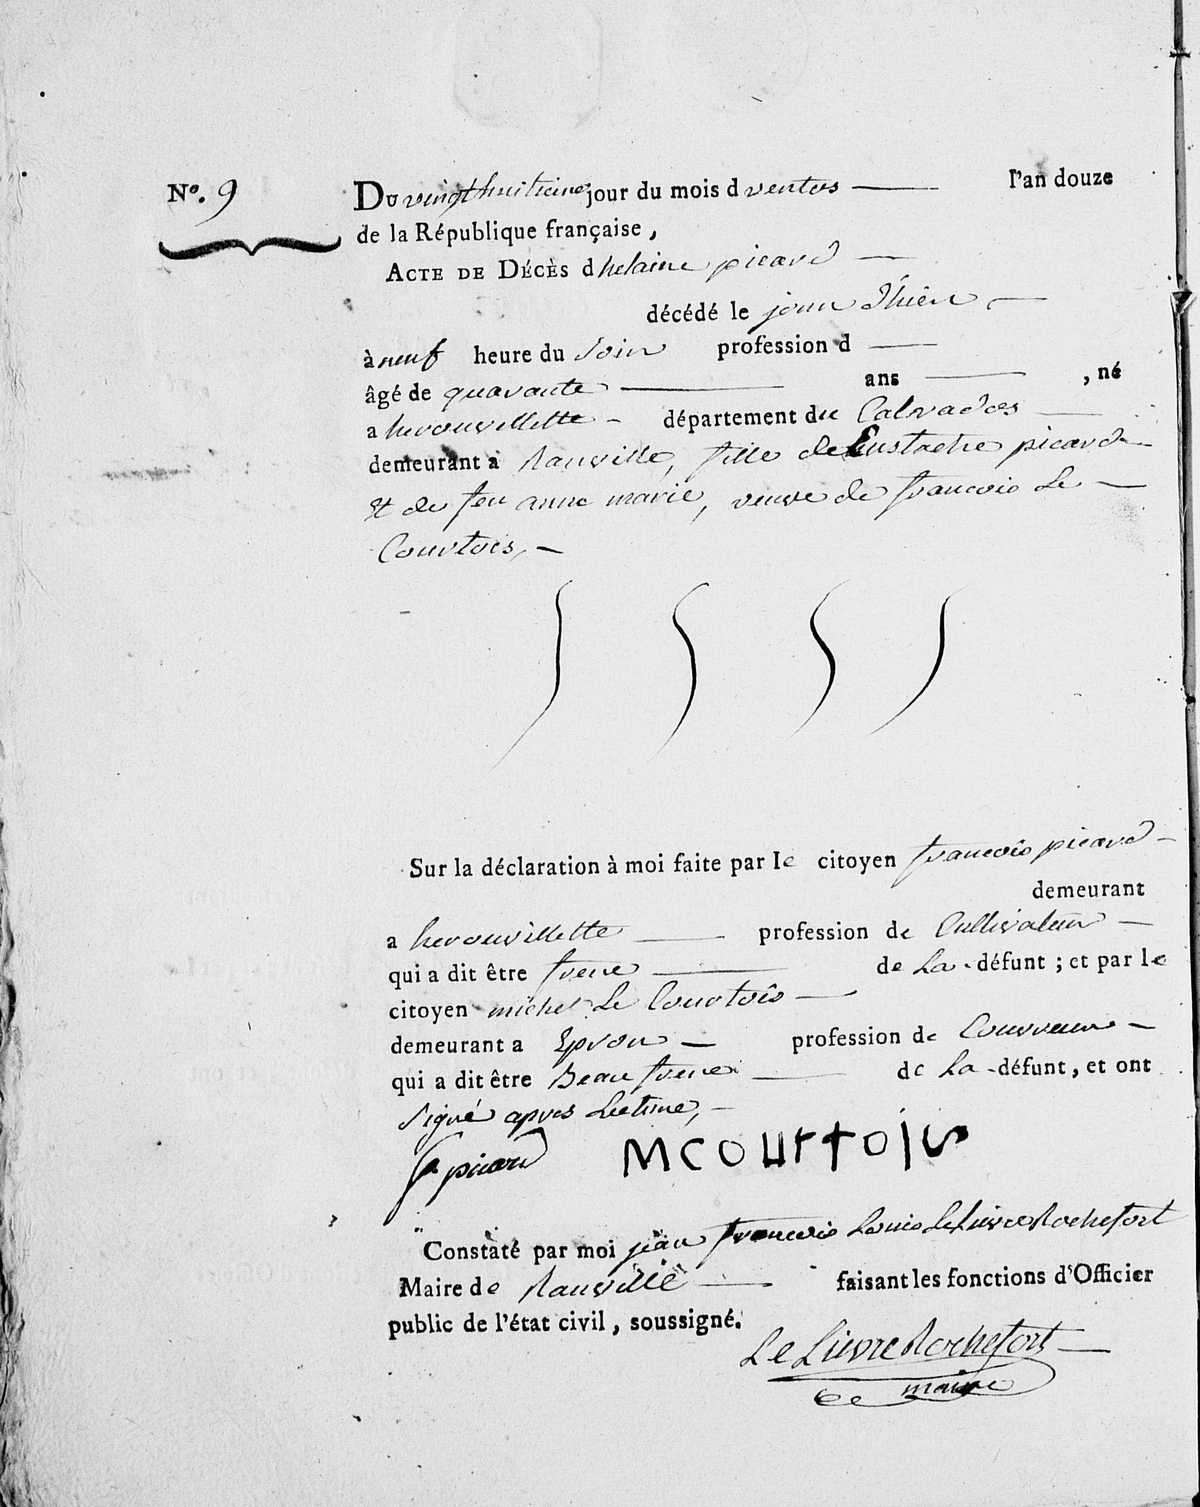 N°. 9
Du vingthuitieme jour du mois d ventos l'an douze
de la République française,
ACTE DE DÉCÈS d helaine picard
décédé le jour d'hier
à neuf heure du soir profession d
âgé de quarante ans , né
a herouvillette département du Calvados
demeurant a Ranville, fille de Eustache picard
et de feu anne marie, veuve de francois Le
Courtois,
Sur la déclaration à moi faite par le citoyen francois picard
demeurant
a herouvillette profession de Cultivateur
qui a dit être frere de La défunt ; et par le
citoyen michel Le Courtois
demeurant a Epron profession de Couvreur
qui a dit être Beau frere de La défunt, et ont
signé apres Lecture,
f picard MCOURTOIS
Constaté par moi jean francois Louis Le Lievre Rochefort
Maire de Ranville faisant les fonctions d'Officier
public de l'état civil, soussigné.
Le Lievre Rochefort
maire